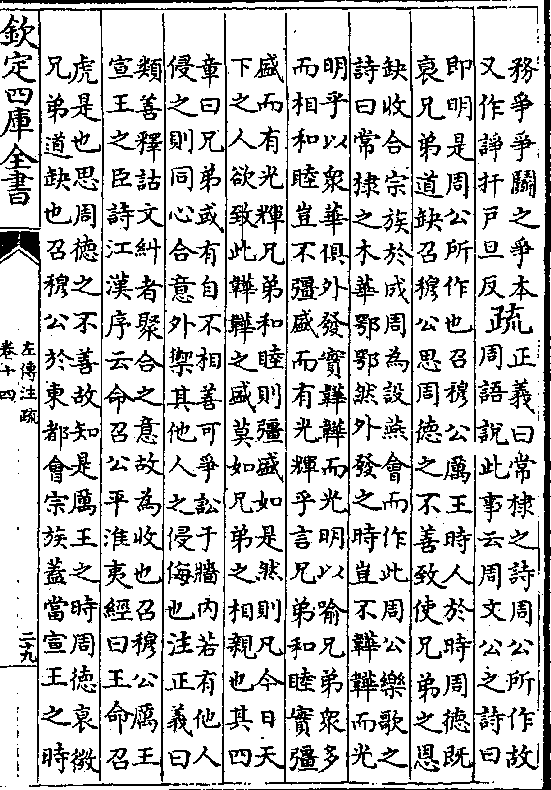 務爭爭鬭之爭本
又作諍扞戸旦反
疏
正義曰常棣之詩周公所作故
周語說此事云周文公之詩曰
即明是周公所作也召穆公厲王時人於時周德既
衰兄弟道缺召穆公思周德之不善致使兄弟之恩
缺收合宗族於成周為設燕會而作此周公樂歌之
詩曰常棣之木華鄂鄂然外發之時豈不韡韡而光
明乎以衆華俱外發實韡韡而光明以喻兄弟衆多
而相和睦豈不彊盛而有光輝乎言兄弟和睦實彊
盛而有光輝兄弟和睦則彊盛如是然則凡今日天
下之人欲致此韡韡之盛莫如兄弟之相親也其四
章曰兄弟或有自不相善可爭訟于牆内若有他人
侵之則同心合意外禦其他人之侵侮也注正義曰
類善釋詁文糾者聚合之意故為收也召穆公厲王
宣王之臣詩江漢序云命召公平淮夷經曰王命召
虎是也思周德之不善故知是厲王之時周德衰微
兄弟道缺也召穆公於東都會宗族蓋當宣王之時
欽定四庫全書
左傳注疏
卷十四
二十九